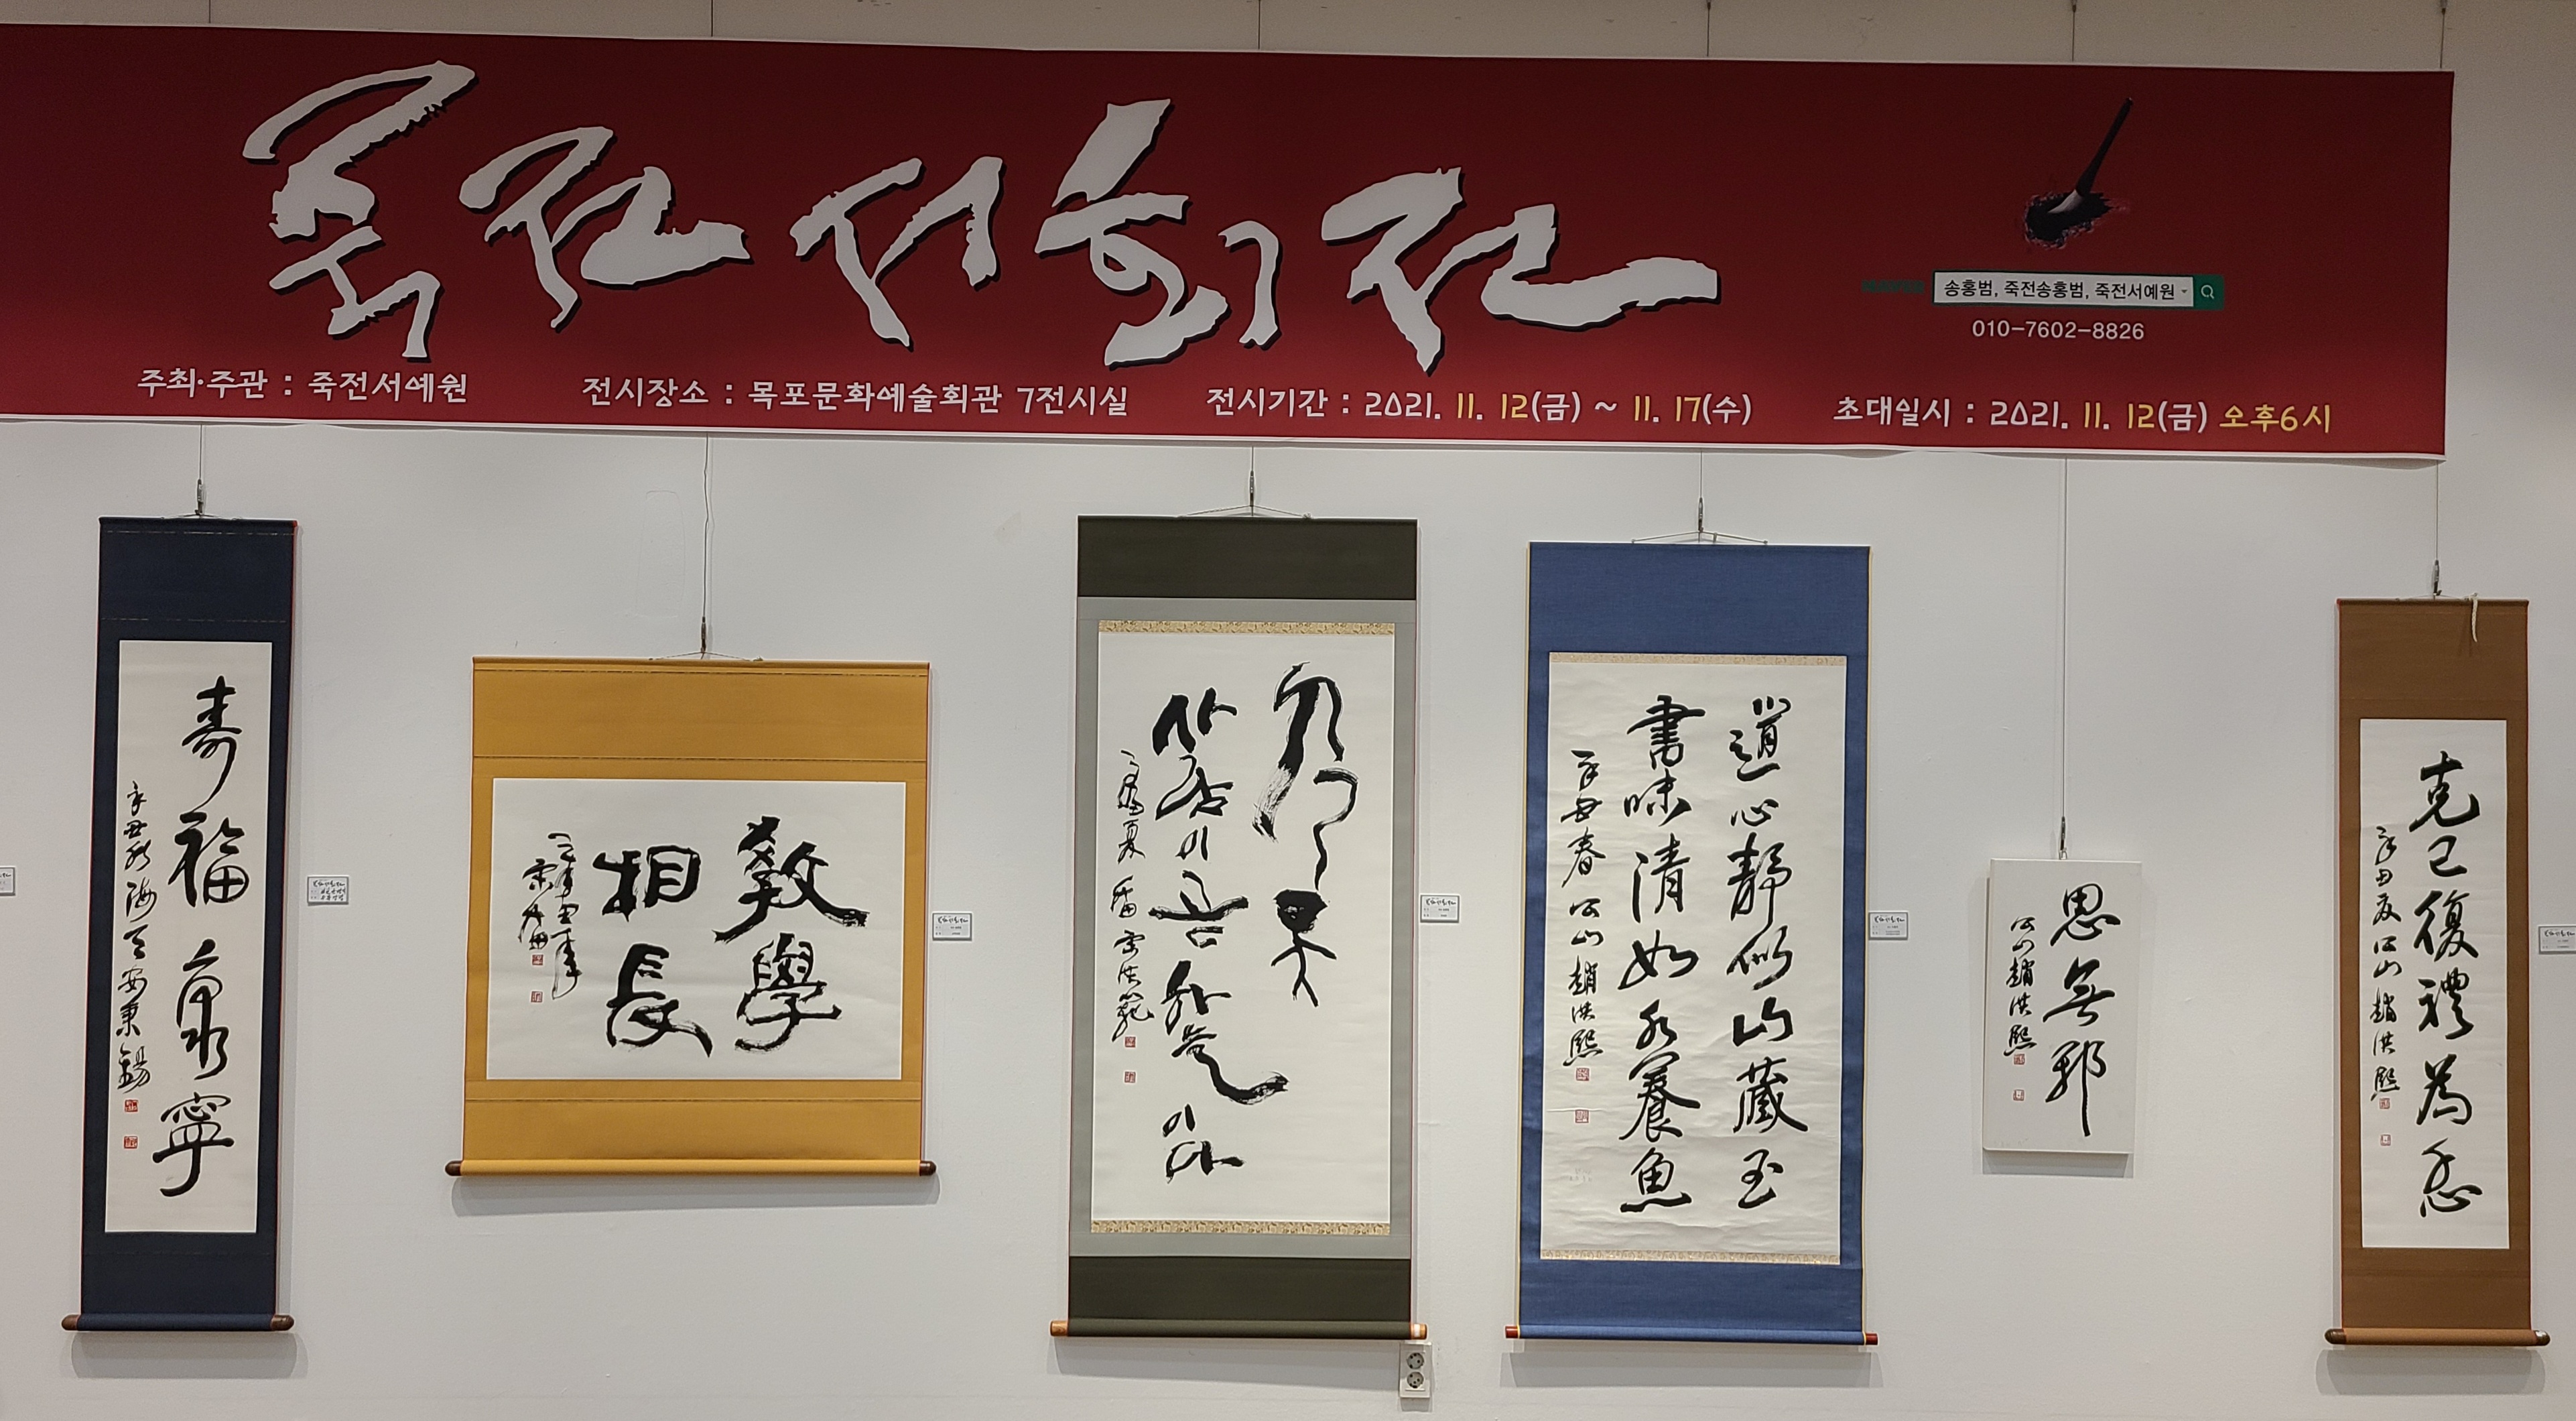 죽전서회전
송홍범, 죽전송홍범, 죽전서예원
010-7602-8826
주최·주관 : 죽전서예원
전시장소 : 목포문화예술회관 7전시실
전시기간 : 2021. 11. 12(금) ~ 11. 17(수)
초대일시 : 2021. 11. 12(금) 오후6시
壽福康寧
辛丑秋 海 安秉錫
敎學
相長
道心靜似山藏玉
書味清如水養魚
辛丑春 公山 趙洪熙
思無邪
公山 趙洪熙
克己復禮為仁
辛丑夏 公山 趙洪熙